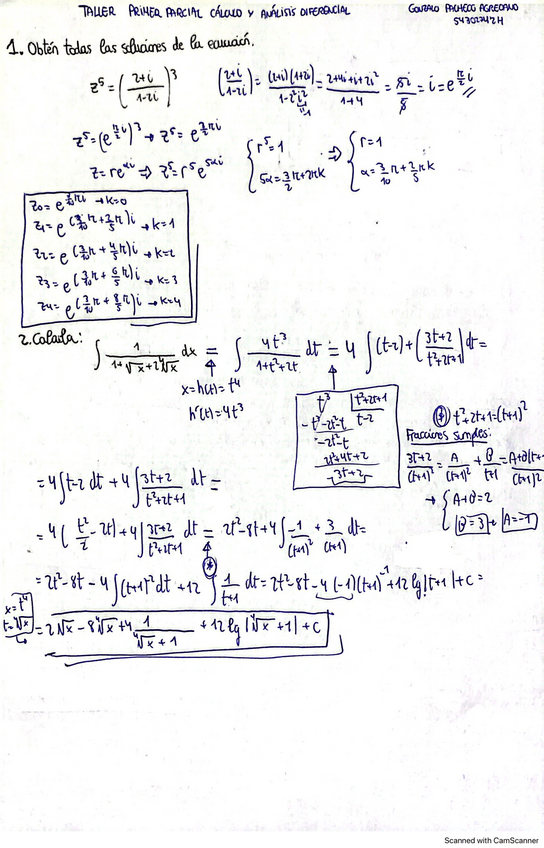 TALLER PRIMER PARCIAL CÁLCULO Y ANÁLISIS DIFERENCIAL
GONZALO PACHECO AGREDANO
1. Obtén todas las soluciones de la ecuación.
z⁵ = ((2+i)/(1-2i))³
((2+i)/(1-2i)) = ((2+i)(1+2i))/(1-2²i²) = (2+4i+i+2i²)/(1+4) = 5i/5 = i = e^(π/2 i)
z⁵ = (e^(π/2 i))³ → z⁵ = e^(3/2 πi)
z = re^(αi) ⇒ z⁵ = r⁵e^(5αi)
{ r⁵ = 1 ⇒ { r = 1
5α = 3/2 π + 2πk α = 3/10 π + 2/5 πk
z0 = e^(3/10 πi) → k=0
z1 = e^(3/10 π + 2/5 π)i → k=1
z2 = e^(3/10 π + 4/5 π)i → k=2
z3 = e^(3/10 π + 6/5 π)i → k=3
z4 = e^(3/10 π + 8/5 π)i → k=4
2. Calcula:
∫ 1/(1+√x+2∜x) dx = ∫ 4t³/(1+t²+2t) dt = 4 ∫ (t-2) + (3t+2)/(t²+2t+1) dt =
x = h(t) = t⁴
h'(t) = 4t³
t³ | t²+2t+1
-t³-2t²-t t-2
-2t²-t
2t²+4t+2
3t+2
(*) t²+2t+1 = (t+1)²
Fracciones simples:
(3t+2)/(t+1)² = A/(t+1)² + B/(t+1) = (A+B(t+1))/(t+1)²
→ { A+B=2
B=3 → A=-1
= 4 ∫ t-2 dt + 4 ∫ (3t+2)/(t²+2t+1) dt =
= 4 (t²/2 - 2t) + 4 ∫ (3t+2)/(t²+2t+1) dt = 2t²-8t+4 ∫ -1/(t+1)² + 3/(t+1) dt =
(*)
= 2t²-8t-4 ∫ (t+1)² dt + 12 ∫ 1/(t+1) dt = 2t²-8t-4(-1)(t+1)⁻¹+12 lg|t+1|+C =
x = t⁴
t = ∜x
= 2√x - 8∜x + 4 1/(∜x+1) + 12 lg|∜x+1| + C
Scanned with CamScanner